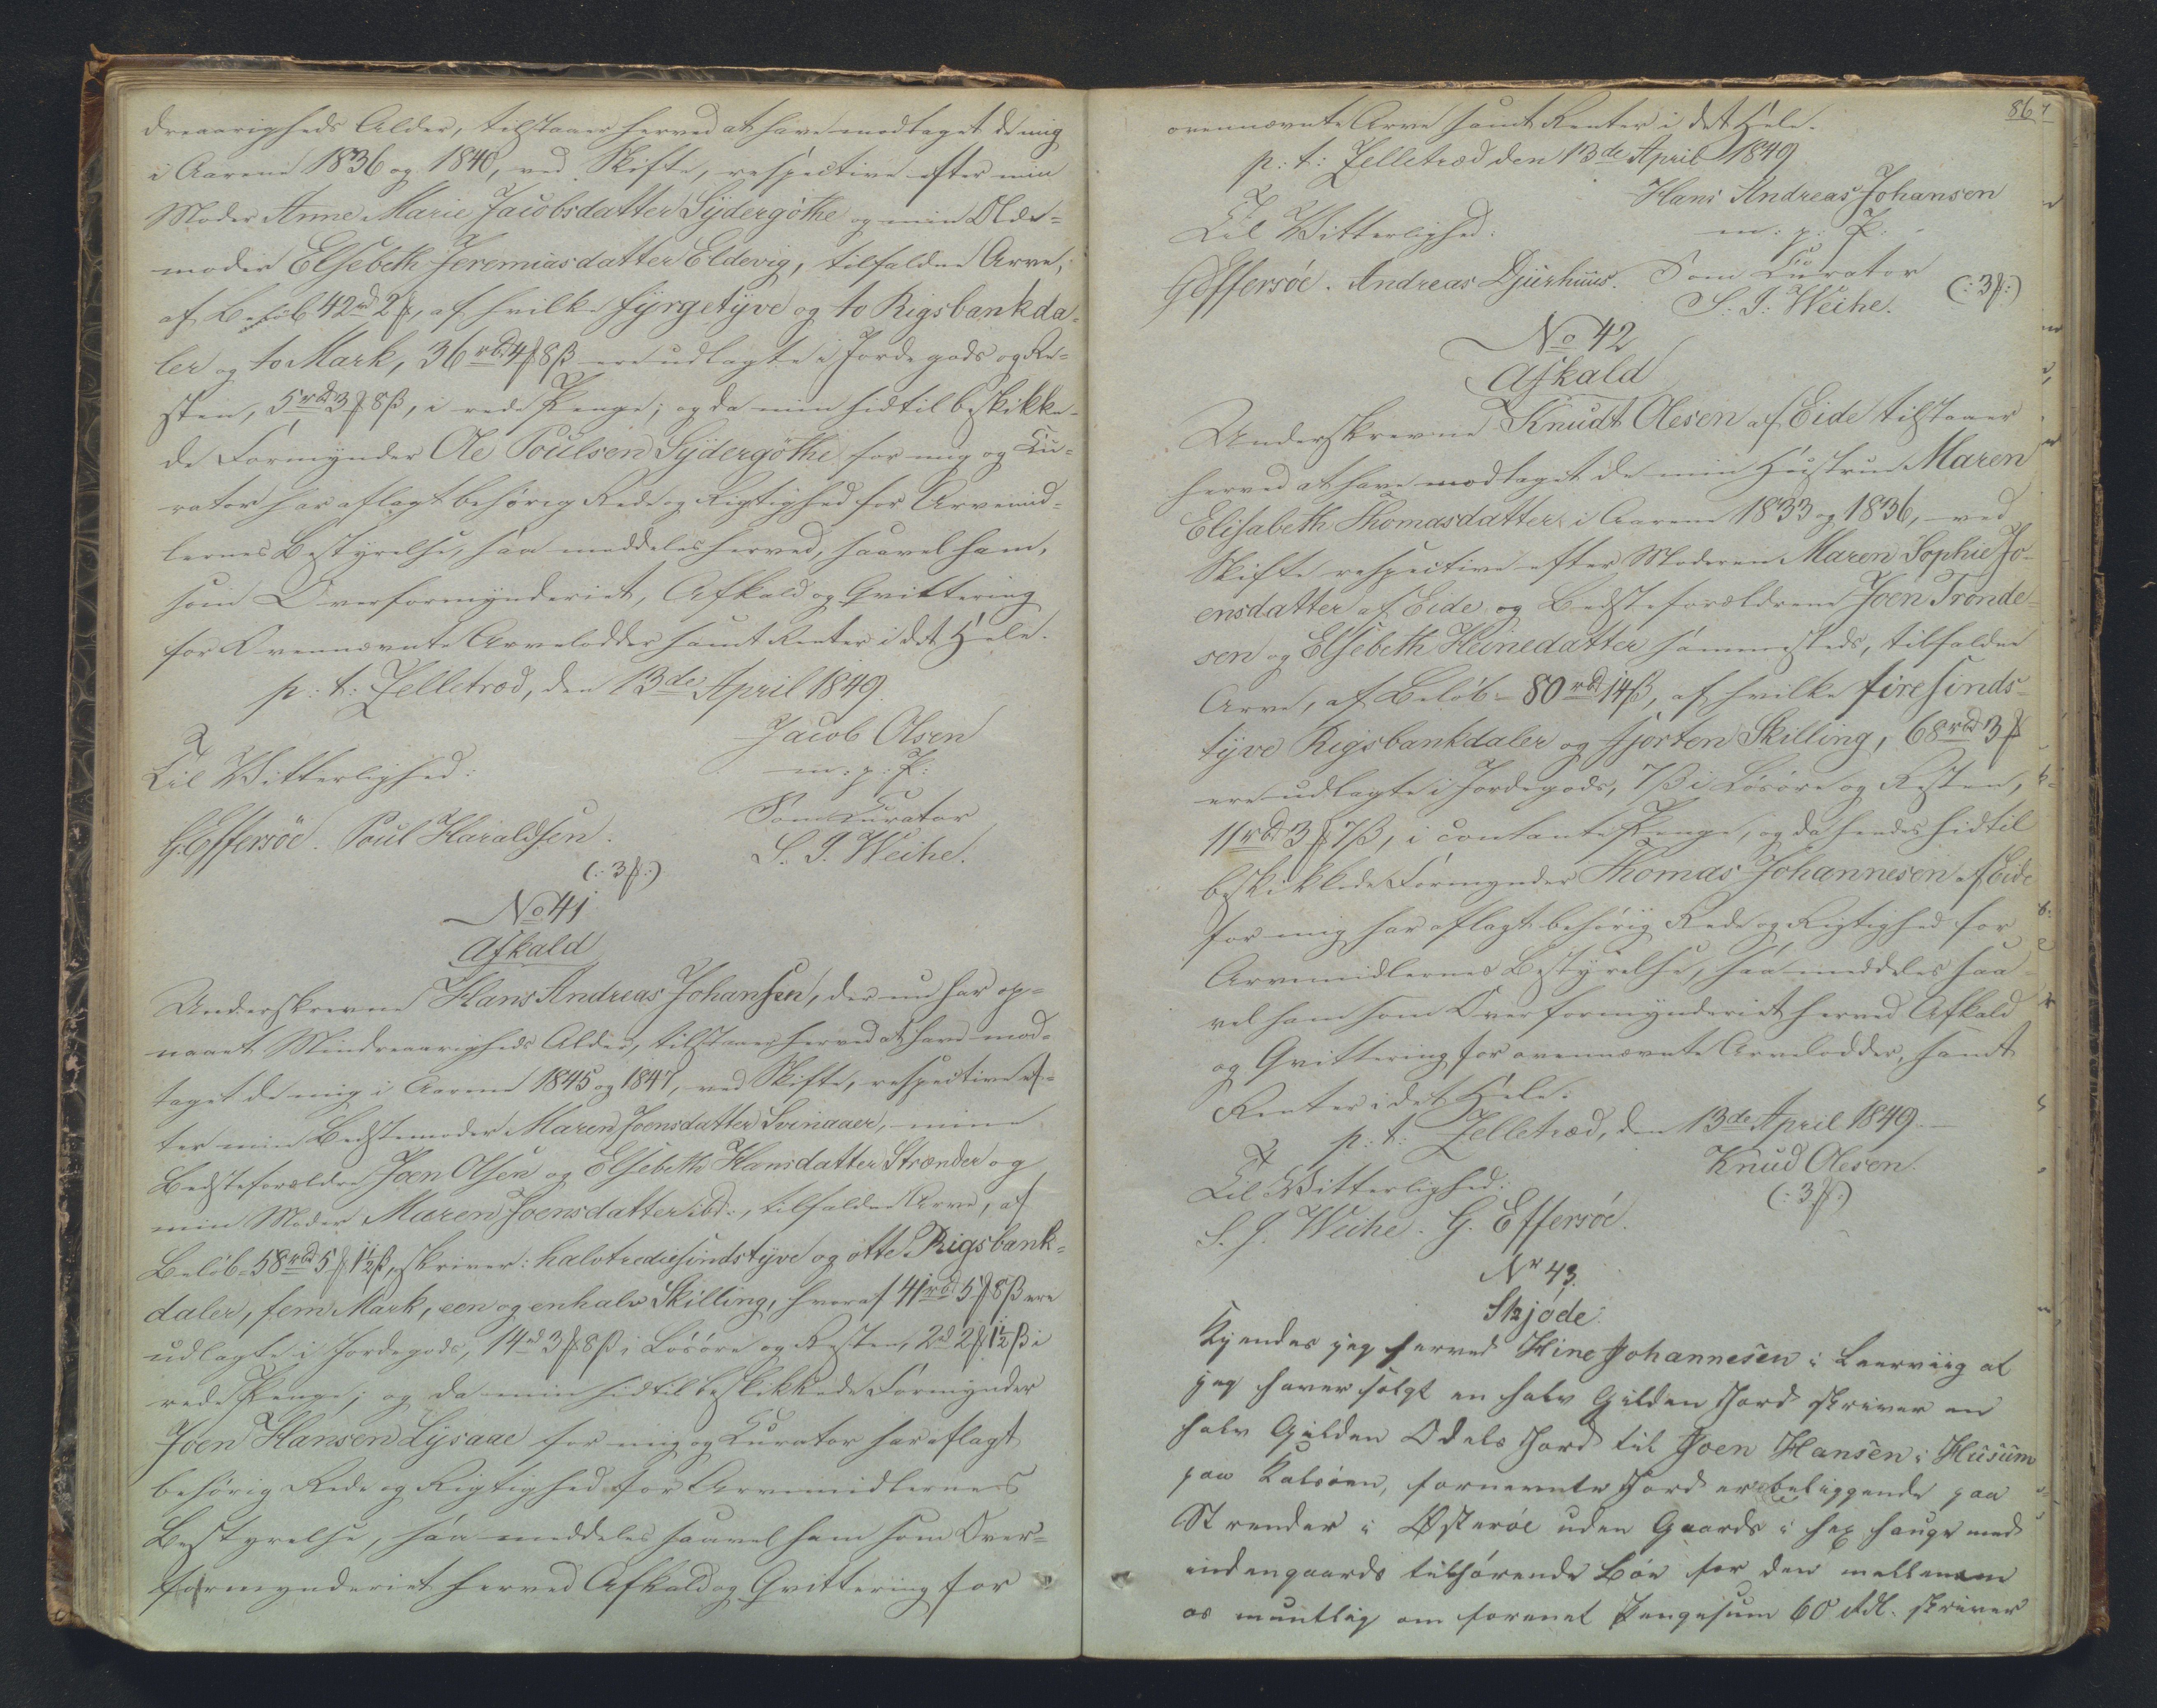 dreaarigheds Alder, tilstaaer herved at have modtaget de mig
i Aarene 1836 og 1840, ved Skifte, respective efter min
Moder Anne Marie Jacobsdatter Sydergøthe og min Olde-
moder Elsebeth Jeremiasdatter Eldevig, tilfaldne Arve,
af Beløb 42 rd 2 ℳ, af hvilke fyrgetyve og to Rigsbankda-
ler og to Mark, 36 rbd 4 ℳ 8 ß ere udlagte i Jordegods og Re-
sten, 5 rbd 3 ℳ 8 ß, i rede Penge; og da min hidtil beskikke-
de Formynder Ole Poulsen Sydergøthe for mig og Cu-
rator har aflagt behørig Rede og Rigtighed for Arvemid-
lernes Bestyrelse, saa meddeles herved, saavel ham,
som Overformynderiet, Afkald og Qvittering
for Ovennævnte Arvelodder samt Renter i det Hele.
p: t: Zelletræd, den 13de April 1849.
Jacob Olsen
Til Vitterlighed:
m: p: P:
Som Curator
G. Effersöe. Poul Haraldsen.
S. J. Weihe.
(: 3 ℳ :)
No 41
Afkald
Underskrevne Hans Andreas Johansen, der nu har op-
naaet Mindreaarigheds Alder, tilstaaer herved at have mod-
taget de mig i Aarene 1845 og 1847, ved Skifte, respective ef-
ter min Bedstemoder Maren Joensdatter Svinaaer, mine
Bedsteforældre Joen Olsen og Elsebeth Hansdatter Strænder og
min Moder Maren Joensdatter ibd:, tilfaldne Arve, af
Beløb 58 rbd 5 ℳ 1½ ß, skriver: halvtrediesindstyve og otte Rigsbank-
daler, fem Mark, een og en halv Skilling, hvoraf 41 rbd 5 ℳ 8 ß ere
udlagte i Jordegods, 14 rd 3 ℳ 8 ß i Løsøre og Resten, 2 d 2 ℳ 1½ ß i
rede Penge; og da min hidtil beskikkede Formynder
Joen Hansen Lysaae for mig og Curator har aflagt
behørig Rede og Rigtighed for Arvemidlernes
Bestyrelse, saa meddeles saavel ham som Over-
formynderiet herved Afkald og Qvittering for
86
ovennævnte Arve samt Renter i det Hele.
p: t: Zelletræd den 13de April 1849
Hans Andreas Johansen
Til Vitterlighed:
m: p: P:
GEffersöe. Andreas Djurhuus.
Som Curator
S. J. Weihe.
(: 3 ℳ :)
No 42
Afkald
Underskrevne Knudt Olesen af Eide tilstaaer
herved at have modtaget de min Hustrue Maren
Elisabeth Thomasdatter i Aarene 1833 og 1836, ved
Skifte respective efter Moderen Maren Sophie Jo-
ensdatter af Eide og Bedsteforældrene Joen Trønde-
sen og Elsebeth Heinedatter sammesteds, tilfaldne
Arve, af Beløb 80 rbd 14 ß, af hvilke firesinds-
tyve Rigsbankdaler og fjorten Skilling, 68 rbd 3 ℳ
ere udlagte i Jordegods, 7 ß i Løsøre og Resten,
11 rbd 3 ℳ 7 ß, i contante Penge, og da hendes hidtil
beskikkede Formynder Thomas Johannesen af Eide
for mig har aflagt behørig Rede og Rigtighed for
Arvemidlernes Bestyrelse, saa meddeles saa-
vel ham som Overformynderiet herved Afkald
og Qvittering for ovennævnte Arvelodder, samt
Renter i det Hele.
p: t: Zelletræd, den 13de April 1849.
Til Vitterlighed:
Knud Olesen.
S. J. Weihe. G. Effersöe.
(: 3 ℳ :)
Nr 43.
Skjøde.
Kjendes jeg herved Hine Johannesen i Leerviig at
jeg haver solgt en halv Gilden Jord skriver en
halv Gilden Odels Jord til Joen Hansen i Husum
paa Kalsøen, fornævnte Jord er beliggende paa
Strender i Østerøe uden Gaards i hauge med
indengaards tilhørende Bøe for den mellem
os muntlig om forenet Pengesum 60 Rdl. skriver